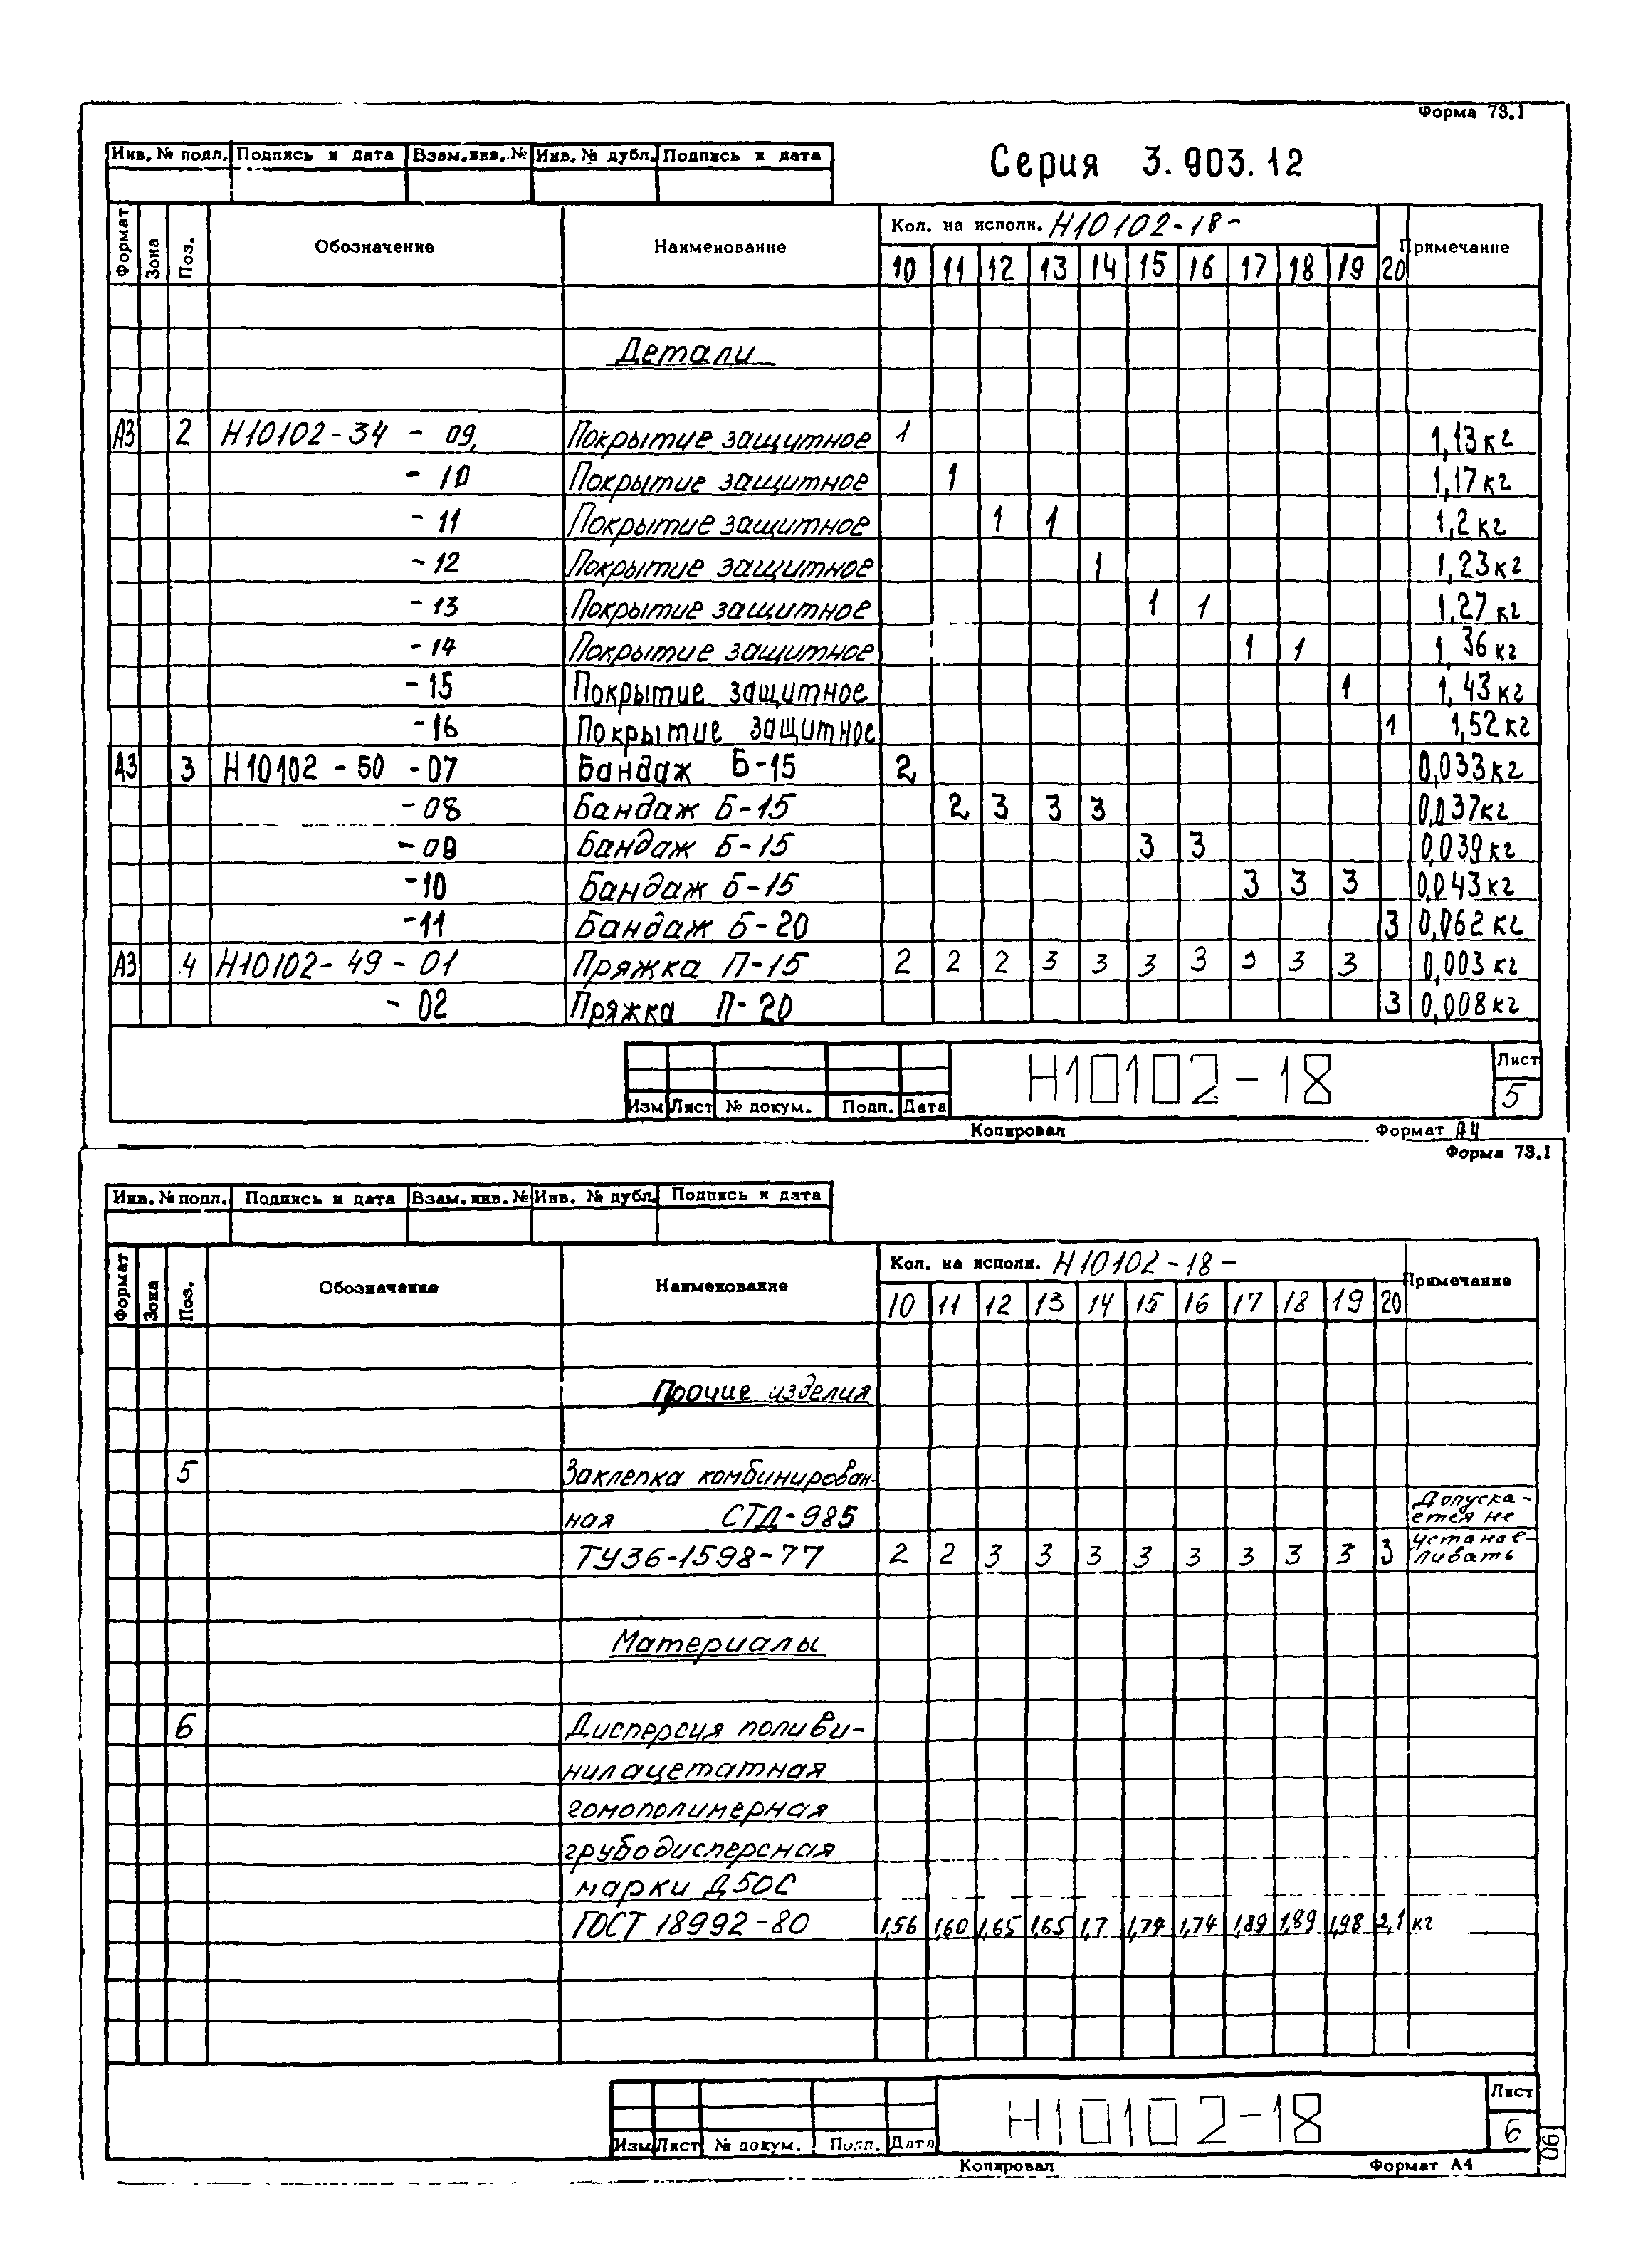 Форма 73.1
Инв. № подл. Подпись и дата Взам. инв. № Инв. № дубл. Подпись и дата
Серия 3.903.12
Формат Зона Поз. Обозначение Наименование Кол. на исполн. Н10102-18- Примечание
10 11 12 13 14 15 16 17 18 19 20
Детали
А3 2 Н10102-34 - 09, Покрытие защитное 1 1,13 кг
- 10 Покрытие защитное 1 1,17 кг
- 11 Покрытие защитное 1 1 1,2 кг
- 12 Покрытие защитное 1 1,23 кг
- 13 Покрытие защитное 1 1 1,27 кг
- 14 Покрытие защитное 1 1 1,36 кг
- 15 Покрытие защитное 1 1,43 кг
- 16 Покрытие защитное 1 1,52 кг
А3 3 Н10102-50 - 07 Бандаж Б-15 2 0,033 кг
- 08 Бандаж Б-15 2 3 3 3 0,037 кг
- 09 Бандаж Б-15 3 3 0,039 кг
- 10 Бандаж Б-15 3 3 3 0,043 кг
- 11 Бандаж Б-20 3 0,062 кг
А3 4 Н10102-49 - 01 Пряжка П-15 2 2 2 3 3 3 3 3 3 3 0,003 кг
- 02 Пряжка П-20 3 0,008 кг
Изм Лист № докум. Подп. Дата
Н10102-18
Лист
5
Копировал Формат А4
Форма 73.1
Инв. № подл. Подпись и дата Взам. инв. № Инв. № дубл. Подпись и дата
Формат Зона Поз. Обозначение Наименование Кол. на исполн. Н10102-18- Примечание
10 11 12 13 14 15 16 17 18 19 20
Прочие изделия
5 Заклепка комбинирован-
ная СТД-985 Допуска-
ется не
ТУ36-1598-77 2 2 3 3 3 3 3 3 3 3 3 устанав-
ливать
Материалы
6 Дисперсия поливи-
нилацетатная
гомополимерная
грубодисперсная
марки Д50С
ГОСТ 18992-80 1,56 1,60 1,65 1,65 1,7 1,74 1,74 1,89 1,89 1,98 2,1 кг
Изм Лист № докум. Подп. Дата
Н10102-18
Лист
6
Копировал Формат А4